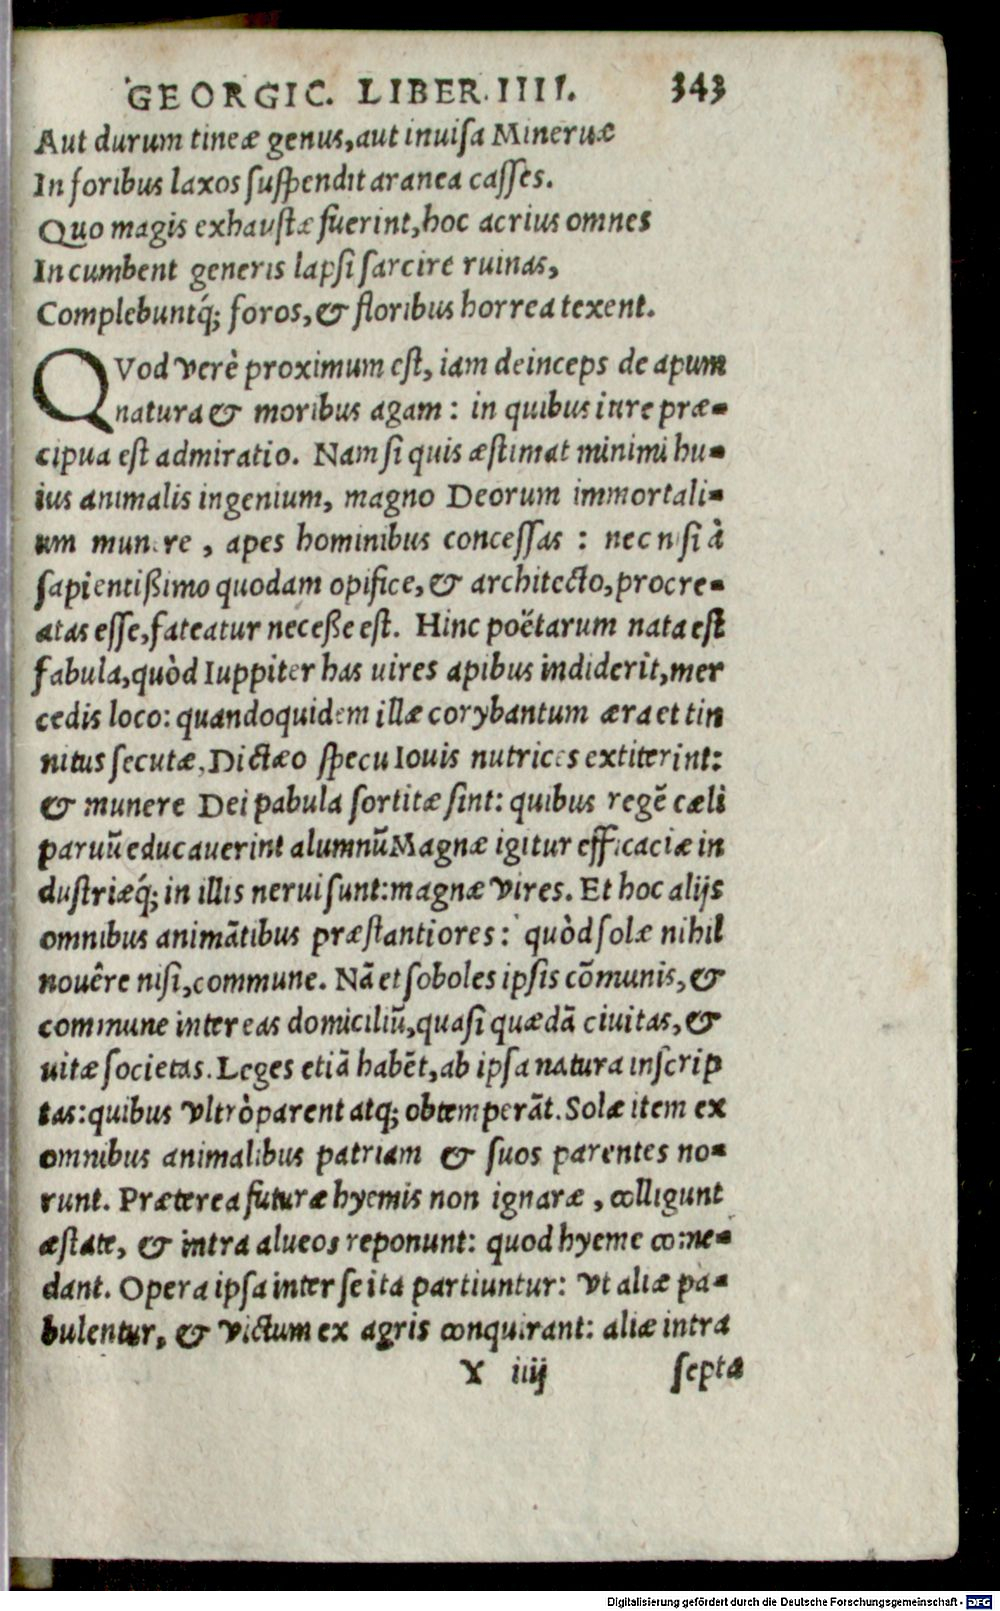 GEORGIC. LIBER. IIII. 343
Aut durum tineæ genus, aut inuisa Mineruæ
In foribus laxos suspendit aranea casses.
Quo magis exhaustæ fuerint, hoc acrius omnes
Incumbent generis lapsi sarcire ruinas,
Complebuntq́; foros, & floribus horrea texent.
QVod verè proximum est, iam deinceps de apum
natura & moribus agam: in quibus iure præ-
cipua est admiratio. Nam si quis æstimat minimi hu-
ius animalis ingenium, magno Deorum immortali-
um munere, apes hominibus concessas: nec nisi à
sapientißimo quodam opifice, & architecto, procre-
atas esse, fateatur neceße est. Hinc poëtarum nata est
fabula, quòd Iuppiter has uires apibus indiderit, mer
cedis loco: quandoquidem illæ corybantum æra et tin
nitus secutæ, Dictæo specu Iouis nutrices extiterint:
& munere Dei pabula sortitæ sint: quibus regẽ cæli
paruũ educauerint alumnũ Magnæ igitur efficaciæ in
dustriæq́; in illis nerui sunt: magnæ vires. Et hoc alijs
omnibus animãtibus præstantiores: quòd solæ nihil
nouêre nisi, commune. Nã et soboles ipsis cõmunis, &
commune inter eas domiciliũ, quasi quædã ciuitas, &
uitæ societas. Leges etiã habẽt, ab ipsa natura inscrip
tas: quibus vltrò parent atq; obtemperãt. Solæ item ex
omnibus animalibus patriam & suos parentes no-
runt. Præterea futuræ hyemis non ignaræ, colligunt
æstate, & intra alueos reponunt: quod hyeme come-
dant. Opera ipsa inter se ita partiuntur: vt aliæ pa-
bulentur, & victum ex agris conquirant: aliæ intra
Y iiij septa
Digitalisierung gefördert durch die Deutsche Forschungsgemeinschaft - DFG